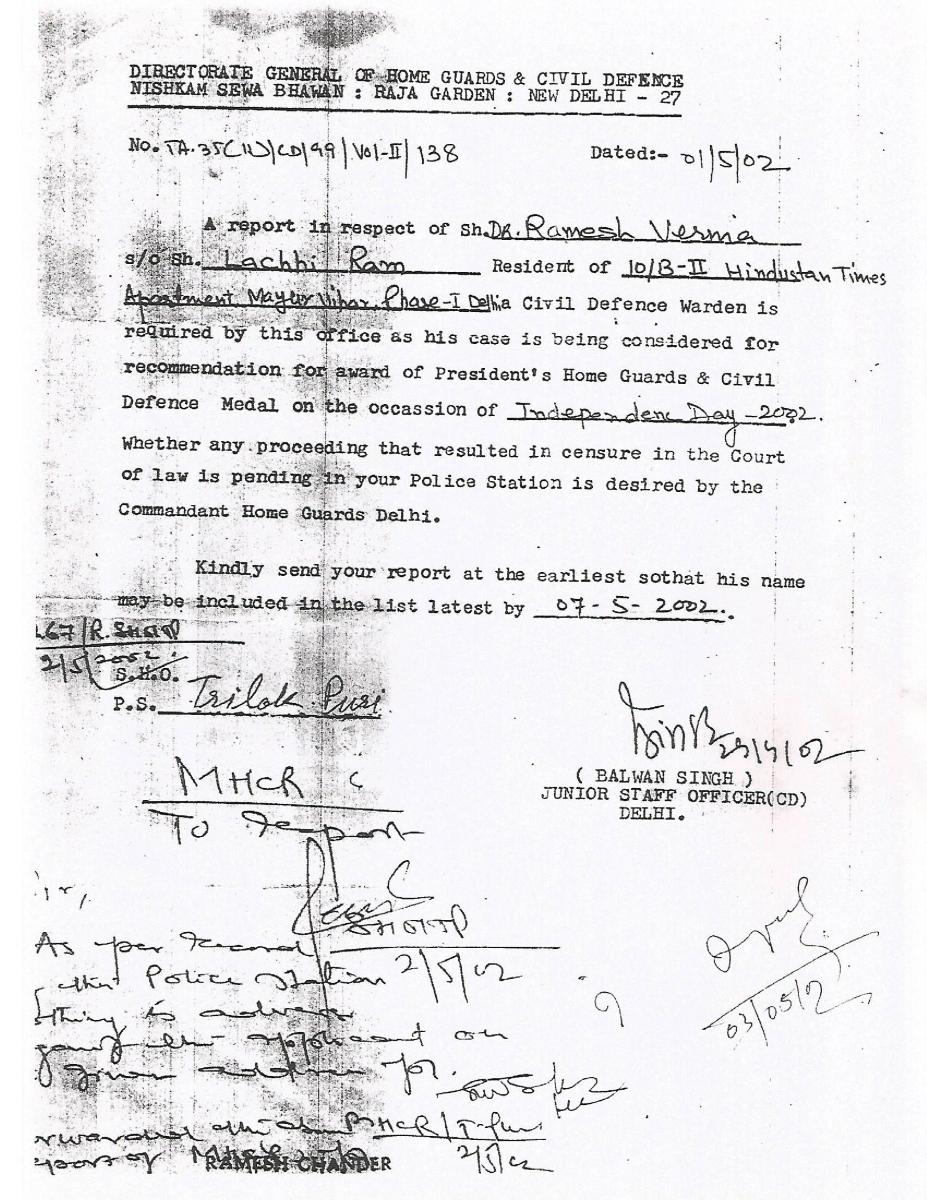 DIRECTORATE GENERAL OF HOME GUARDS & CIVIL DEFENCE
NISHKAM SEWA BHAWAN : RAJA GARDEN : NEW DELHI - 27
No. TA.35(11)/CD/99/Vol-II/138 Dated:- 01/5/02
A report in respect of Sh. DR. Ramesh Verma
s/o Sh. Lachhi Ram Resident of 10/B-II Hindustan Times
Apartment Mayur Vihar Phase-I Delhi a Civil Defence Warden is
required by this office as his case is being considered for
recommendation for award of President's Home Guards & Civil
Defence Medal on the occassion of Independenc Day -2002.
Whether any proceeding that resulted in censure in the Court
of law is pending in your Police Station is desired by the
Commandant Home Guards Delhi.
Kindly send your report at the earliest sothat his name
may be included in the list latest by 07-5-2002.
2/5/2002
S.H.O.
P.S. Trilok Puri
( BALWAN SINGH )
JUNIOR STAFF OFFICER(CD)
DELHI.
MHCR
To Report
As per record
Police Station 2/5/02
applicant on
given address
03/05/02
MHCR/T-Puri
2/5/02
RAMESH CHANDER